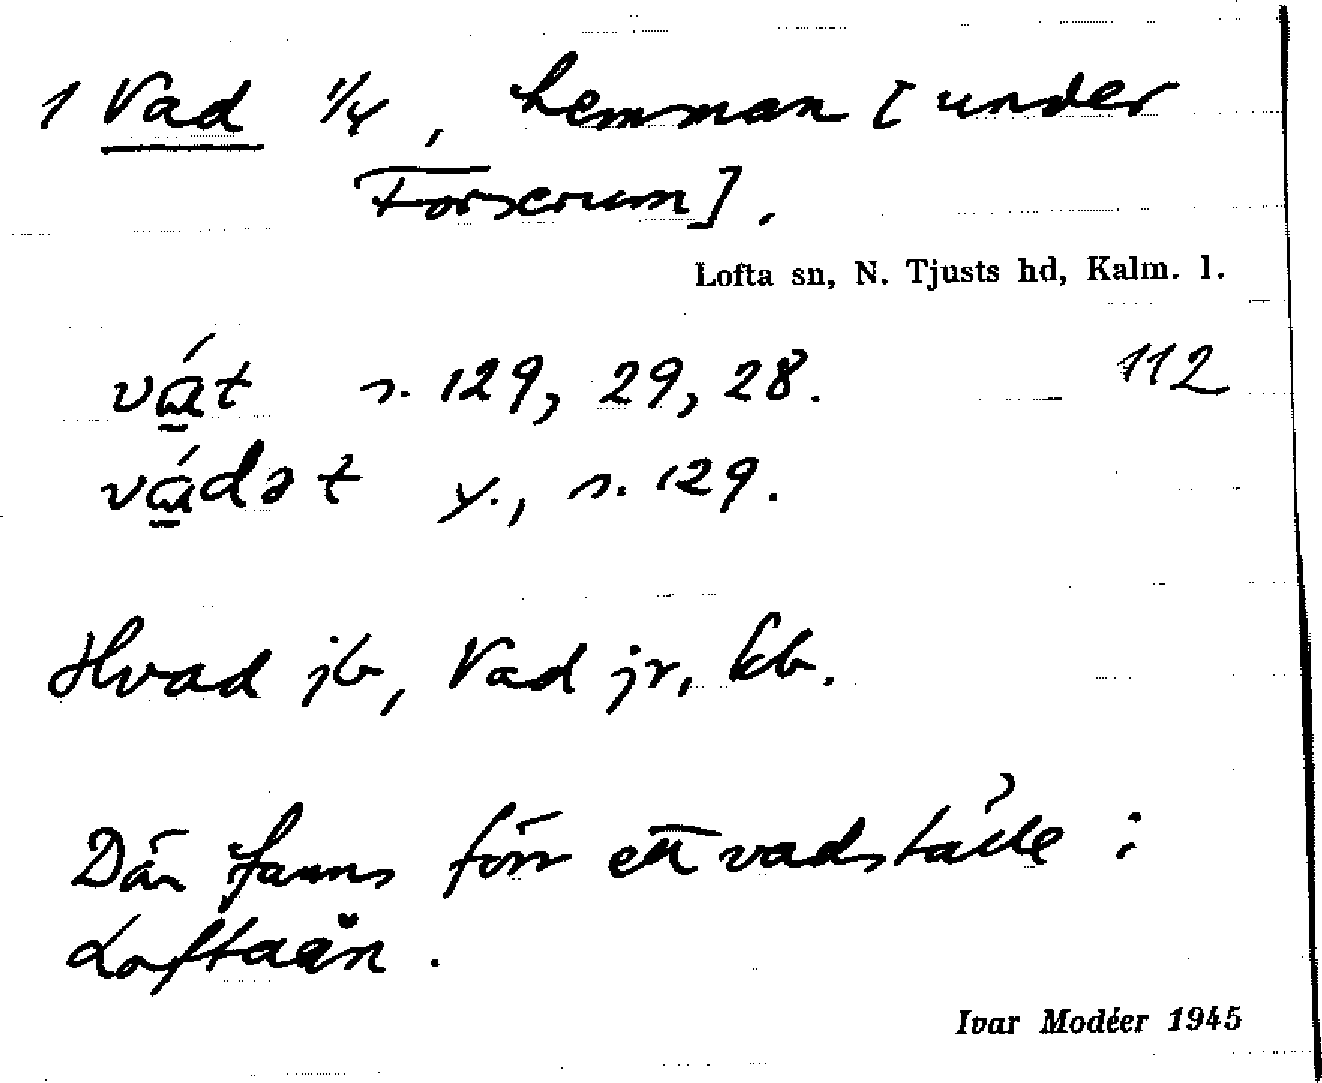 1 Vad 1/4, hemman [under
Forserum].
Lofta sn, N. Tjusts hd, Kalm. l.
vát s. 129, 29, 28. 112
vádət y., s. 129.
Hvad jb, Vad jr, kb.
Där fanns förr ett vadställe i
Loftaån.
Ivar Modéer 1945